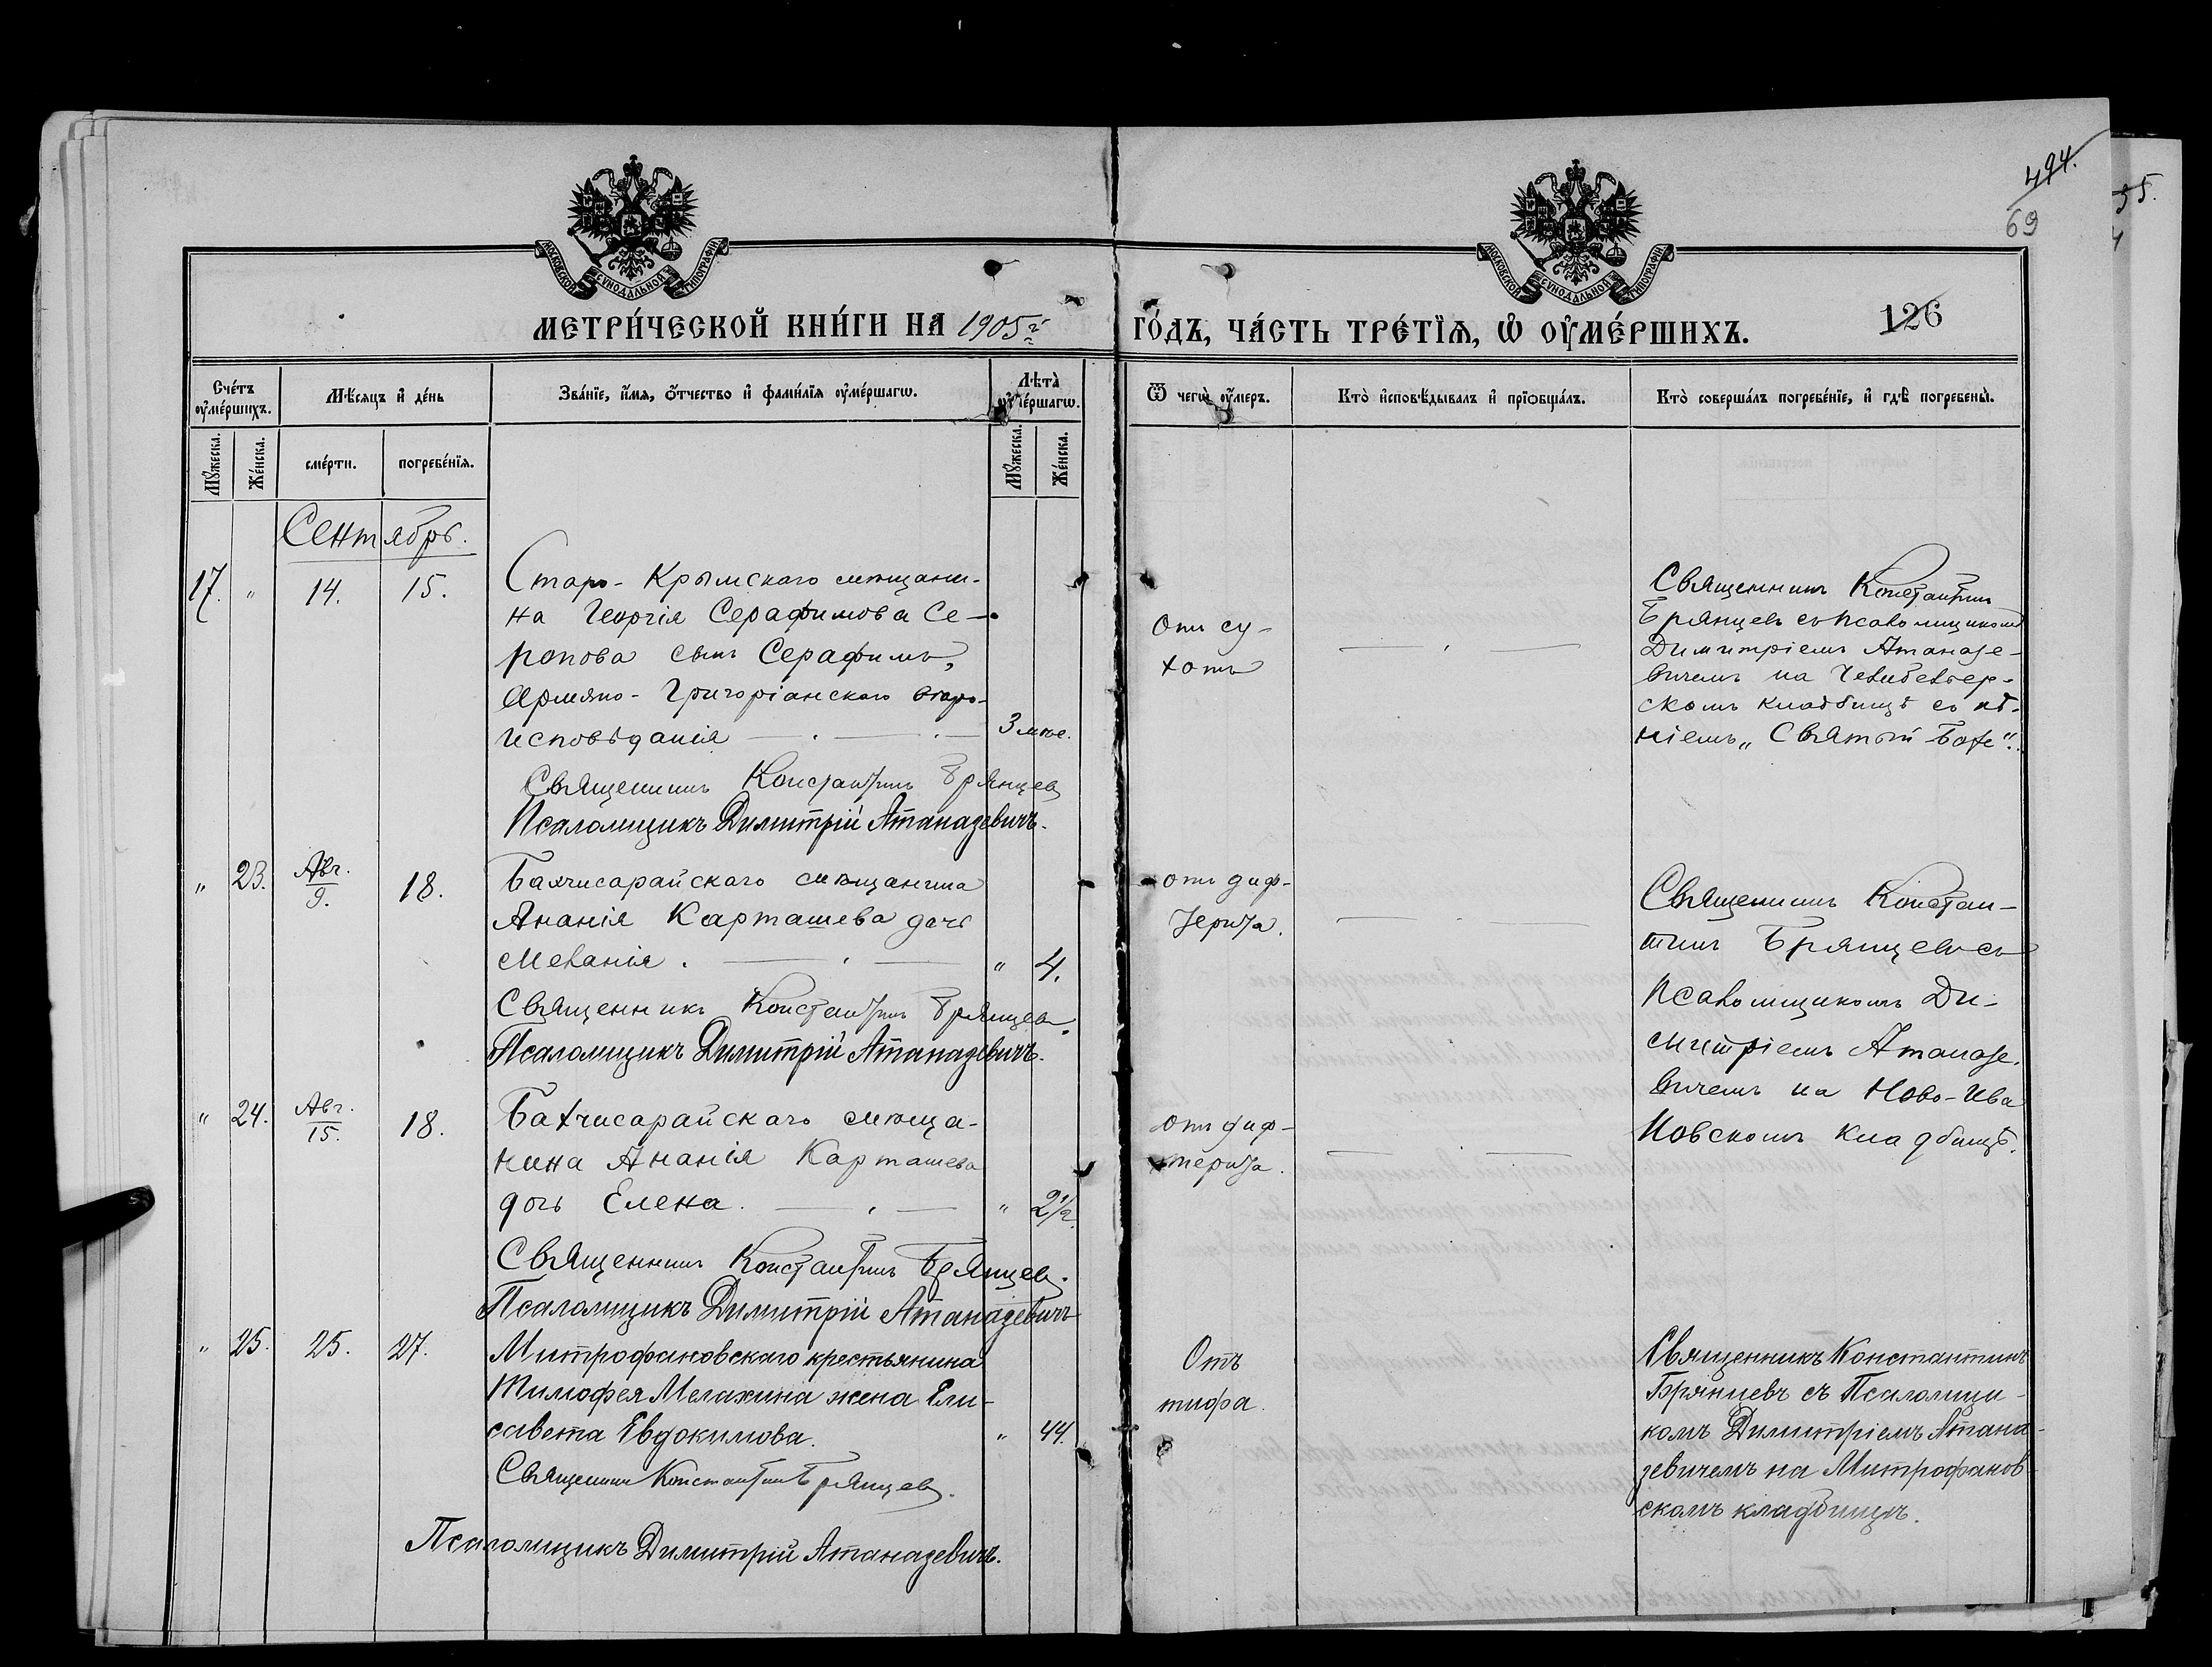 494.
69
55.
МОСКОВСКОЙ СУНОДАЛЬНОЙ ТИПОГРАФІИ
МОСКОВСКОЙ СУНОДАЛЬНОЙ ТИПОГРАФІИ
МЕТРИ́ЧЕСКОЙ КНИ́ГИ НА 1905й ГО́ДЪ, ЧА́СТЬ ТРЕ́ТІѦ, Ѡ ОУМЕ́РШИХЪ.
126
Сче́тъ оуме́ршихъ.
Мѣ́сѧцъ и де́нь
Зва́ніе, и́мѧ, о́тчество и фами́лія оуме́ршагѡ.
Лѣта̀ оуме́ршагѡ.
Ѿ чегѡ̀ оу́меръ.
Кто̀ исповѣ́дывалъ и пріѡбща́лъ.
Кто̀ соверша́лъ погребе́ніе, и гдѣ̀ погребены̀.
Мꙋ́жеска.
Же́нска.
сме́рти.
погребе́нїѧ.
Мꙋ́жеска.
Же́нска.
Сентябрь.
17. " 14. 15.
Старо-Крымскаго мѣщани-
на Георгія Серафимова Се-
ропова сынъ Серафимъ,
Армяно-Григоріанскаго вѣро-
исповѣданія
3 мѣс.
Священникъ Константинъ Брянцевъ
Псаломщикъ Димитрій Атаназевичъ.
Отъ су-
хотъ
Священникъ Константинъ
Брянцевъ съ псаломщикомъ
Димитріемъ Атаназе-
вичемъ на
скомъ кладбищѣ съ пѣ-
ніемъ „Святый Боже".
" 23. Авг. 9. 18.
Бахчисарайскаго мѣщанина
Ананія Карташева дочь
Меланія.
" 4.
Священникъ Константинъ Брянцевъ.
Псаломщикъ Димитрій Атаназевичъ.
отъ диф-
терита.
Священникъ Констан-
тинъ Брянцевъ съ
псаломщикомъ Ди-
митріемъ Атаназе-
вичемъ на Ново-Ива
новскомъ кладбищѣ.
" 24. Авг. 15. 18.
Бахчисарайскаго мѣща-
нина Ананія Карташева
дочь Елена.
" 2 1/2.
Священникъ Константинъ Брянцевъ.
Псаломщикъ Димитрій Атаназевичъ
отъ диф-
терита.
" 25. 25. 27.
Митрофановскаго крестьянина
Тимофея Мелахина жена Ели-
савета Евдокимова.
" 44.
Священникъ Константинъ Брянцевъ.
Псаломщикъ Димитрій Атаназевичъ.
Отъ
тифа.
Священникъ Константинъ
Брянцевъ съ Псаломщи-
комъ Димитріемъ Атана-
зевичемъ на Митрофанов
скомъ кладбищѣ.